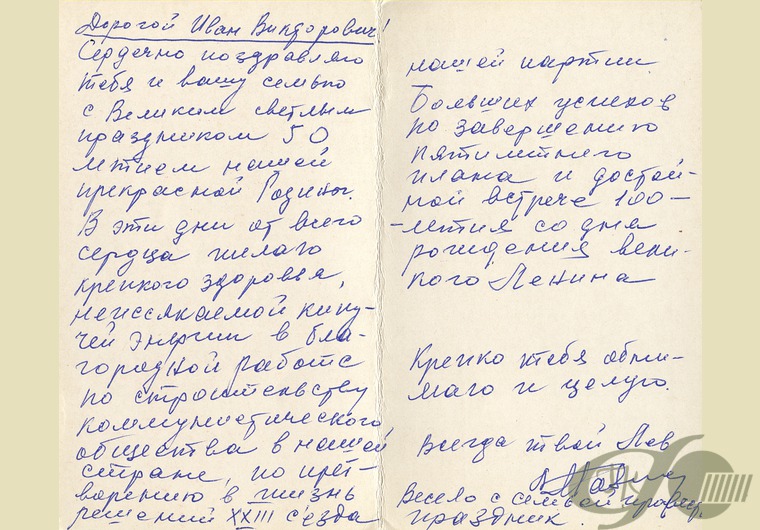 Дорогой Иван Викторович!
Сердечно поздравляю
тебя и вашу семью
с Великим светлым
праздником 50
летием нашей
прекрасной Родины.
В эти дни от всего
сердца желаю
крепкого здоровья,
неиссякаемой кипу-
чей энергии в бла-
городной работе
по строительству
коммунистического
общества в нашей
стране, по прет-
ворению в жизнь
решений XXIII съезда
нашей партии.
Больших успехов
по завершению
пятилетнего
плана и достой-
ной встрече 100-
-летия со дня
рождения вели-
кого Ленина
Крепко тебя обни-
маю и целую.
Всегда твой Лев
Весело с семьёй
праздник.